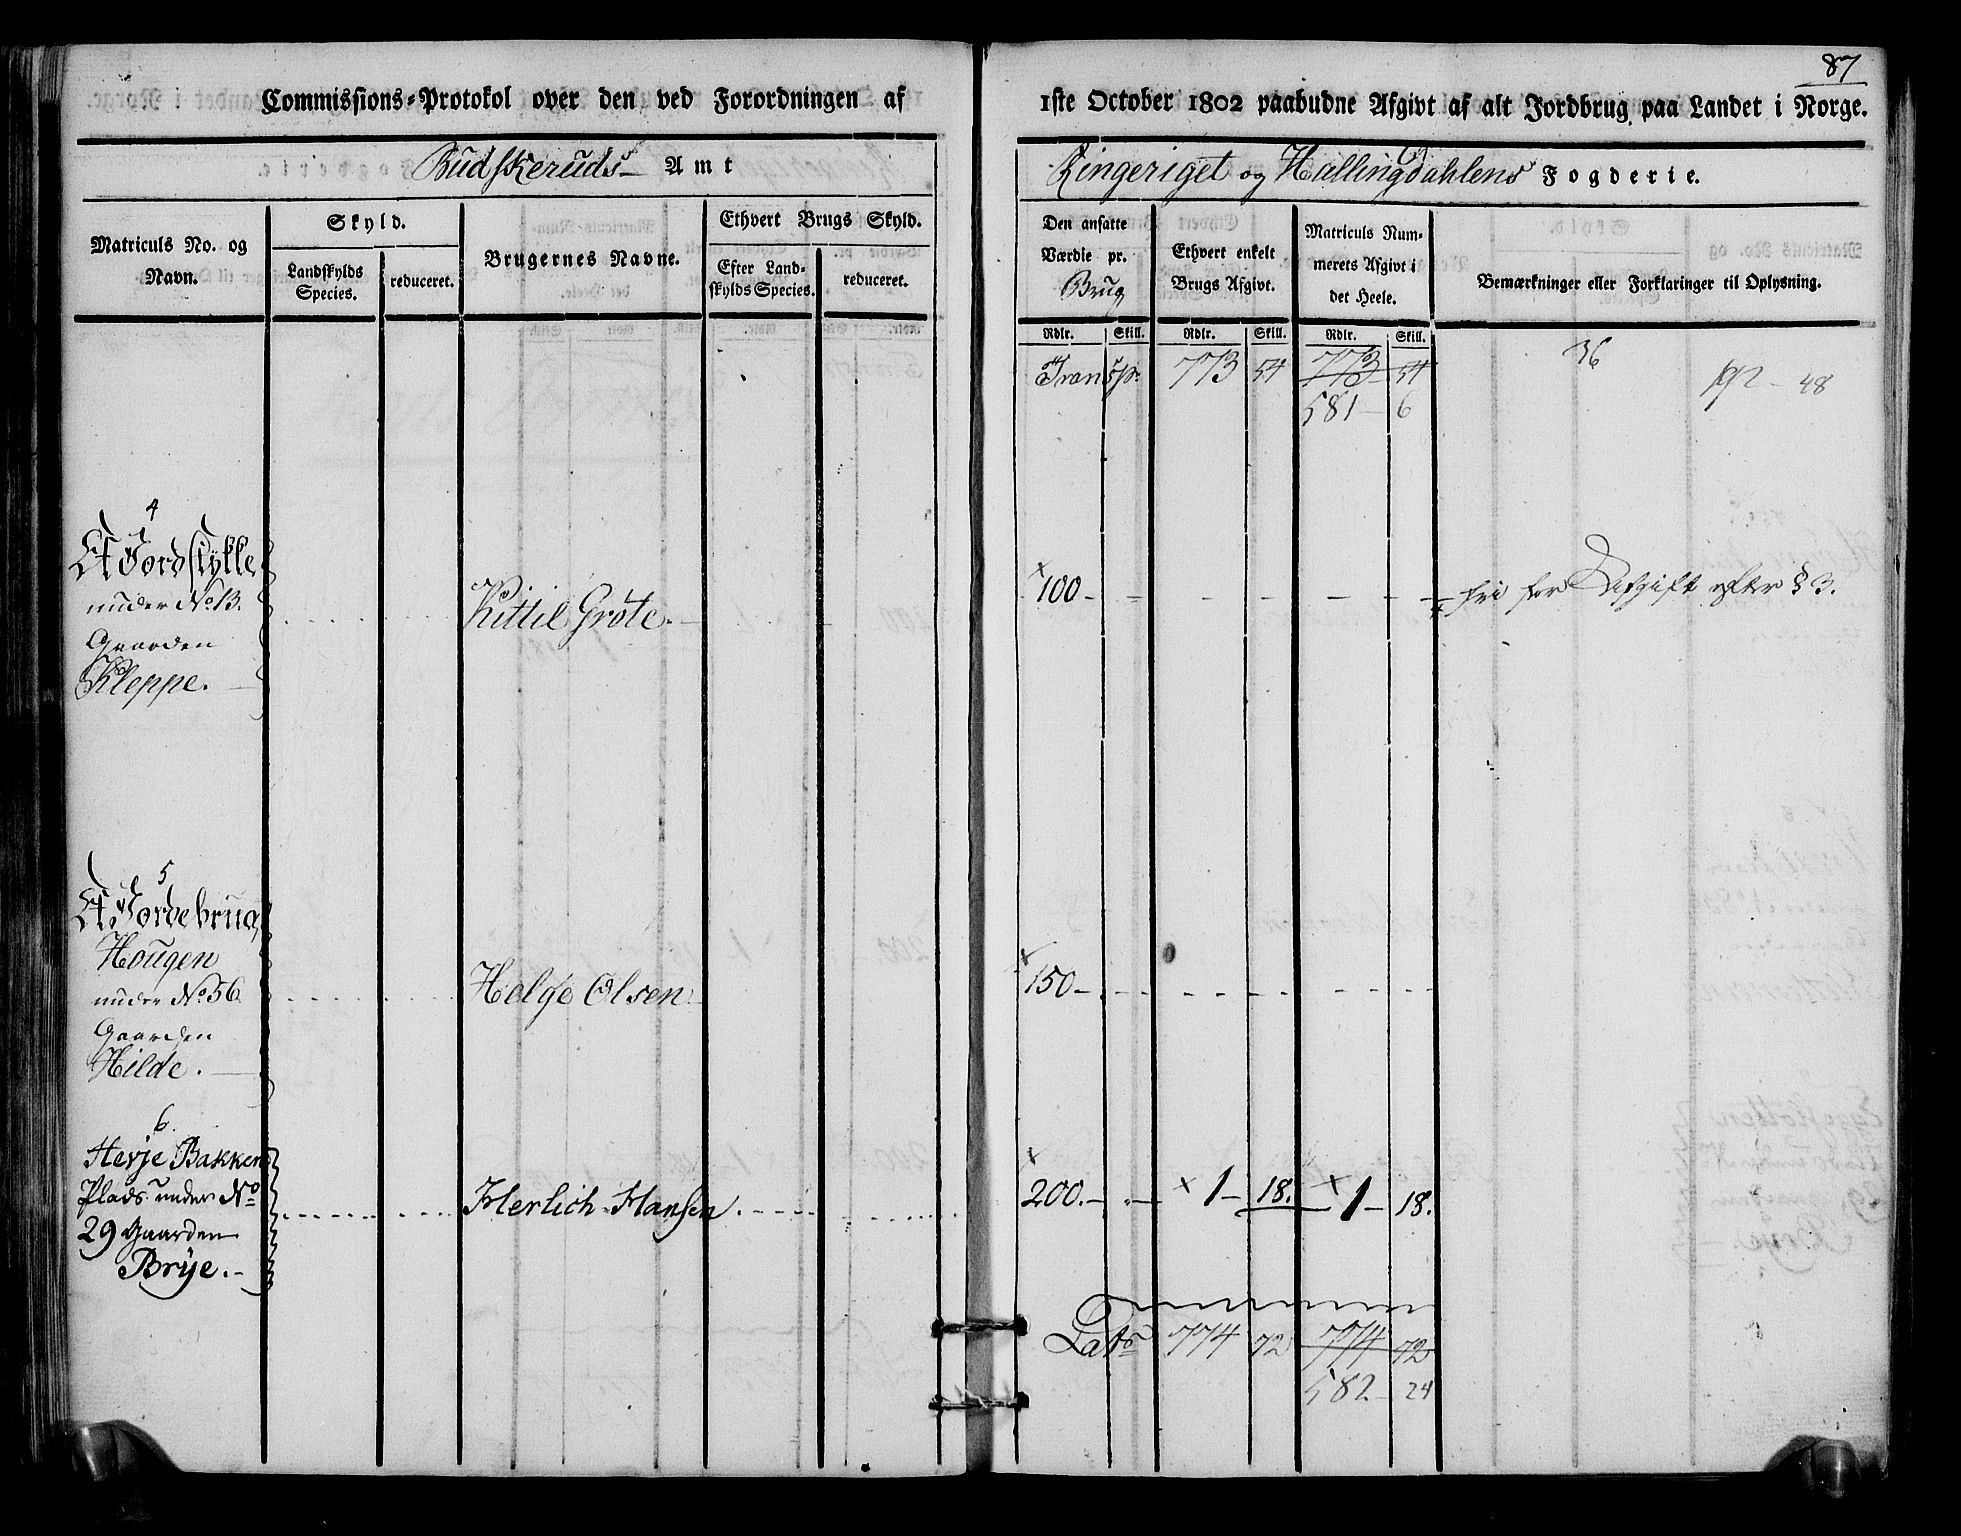 87
Commissions-Protokol over den ved Forordningen af 1ste October 1802 paabudne Afgivt af alt Jordbrug paa Landet i Norge.
Budskeruds Amt
Ringeriget og Hallingdahlens Fogderie.
Matriculs No. og Navn.
Skyld.
Landskylds Species.
reduceret.
Brugernes Navne.
Ethvert Brugs Skyld.
Efter Landskylds Species.
reduceret.
Den ansatte Værdie pr. Brug
Ethvert enkelt Brugs Afgivt.
Matriculs Nummerets Afgivt i det Heele.
Bemærkninger eller Forklaringer til Oplysning.
Rdlr. Skill. Rdlr. Skill. Rdlr. Skill.
36
Transp: 773 54 773 54
192 - 48
581 - 6
4
Et Jordstykke
under No 13.
Gaarden
Kleppe.
Kittil Grøte.
100 - Fri for Afgift efter § 3.
5
Et Jordebrug
Hougen
under No 56
Gaarden
Hilde.
Helge Olsen
150 -
6.
Herje Bakken
Plads under No
29 Gaarden
Brÿe.
Herlich Hansen
200. - 1 - 18. 1 - 18.
Lats 774 72 774 72
582 - 24